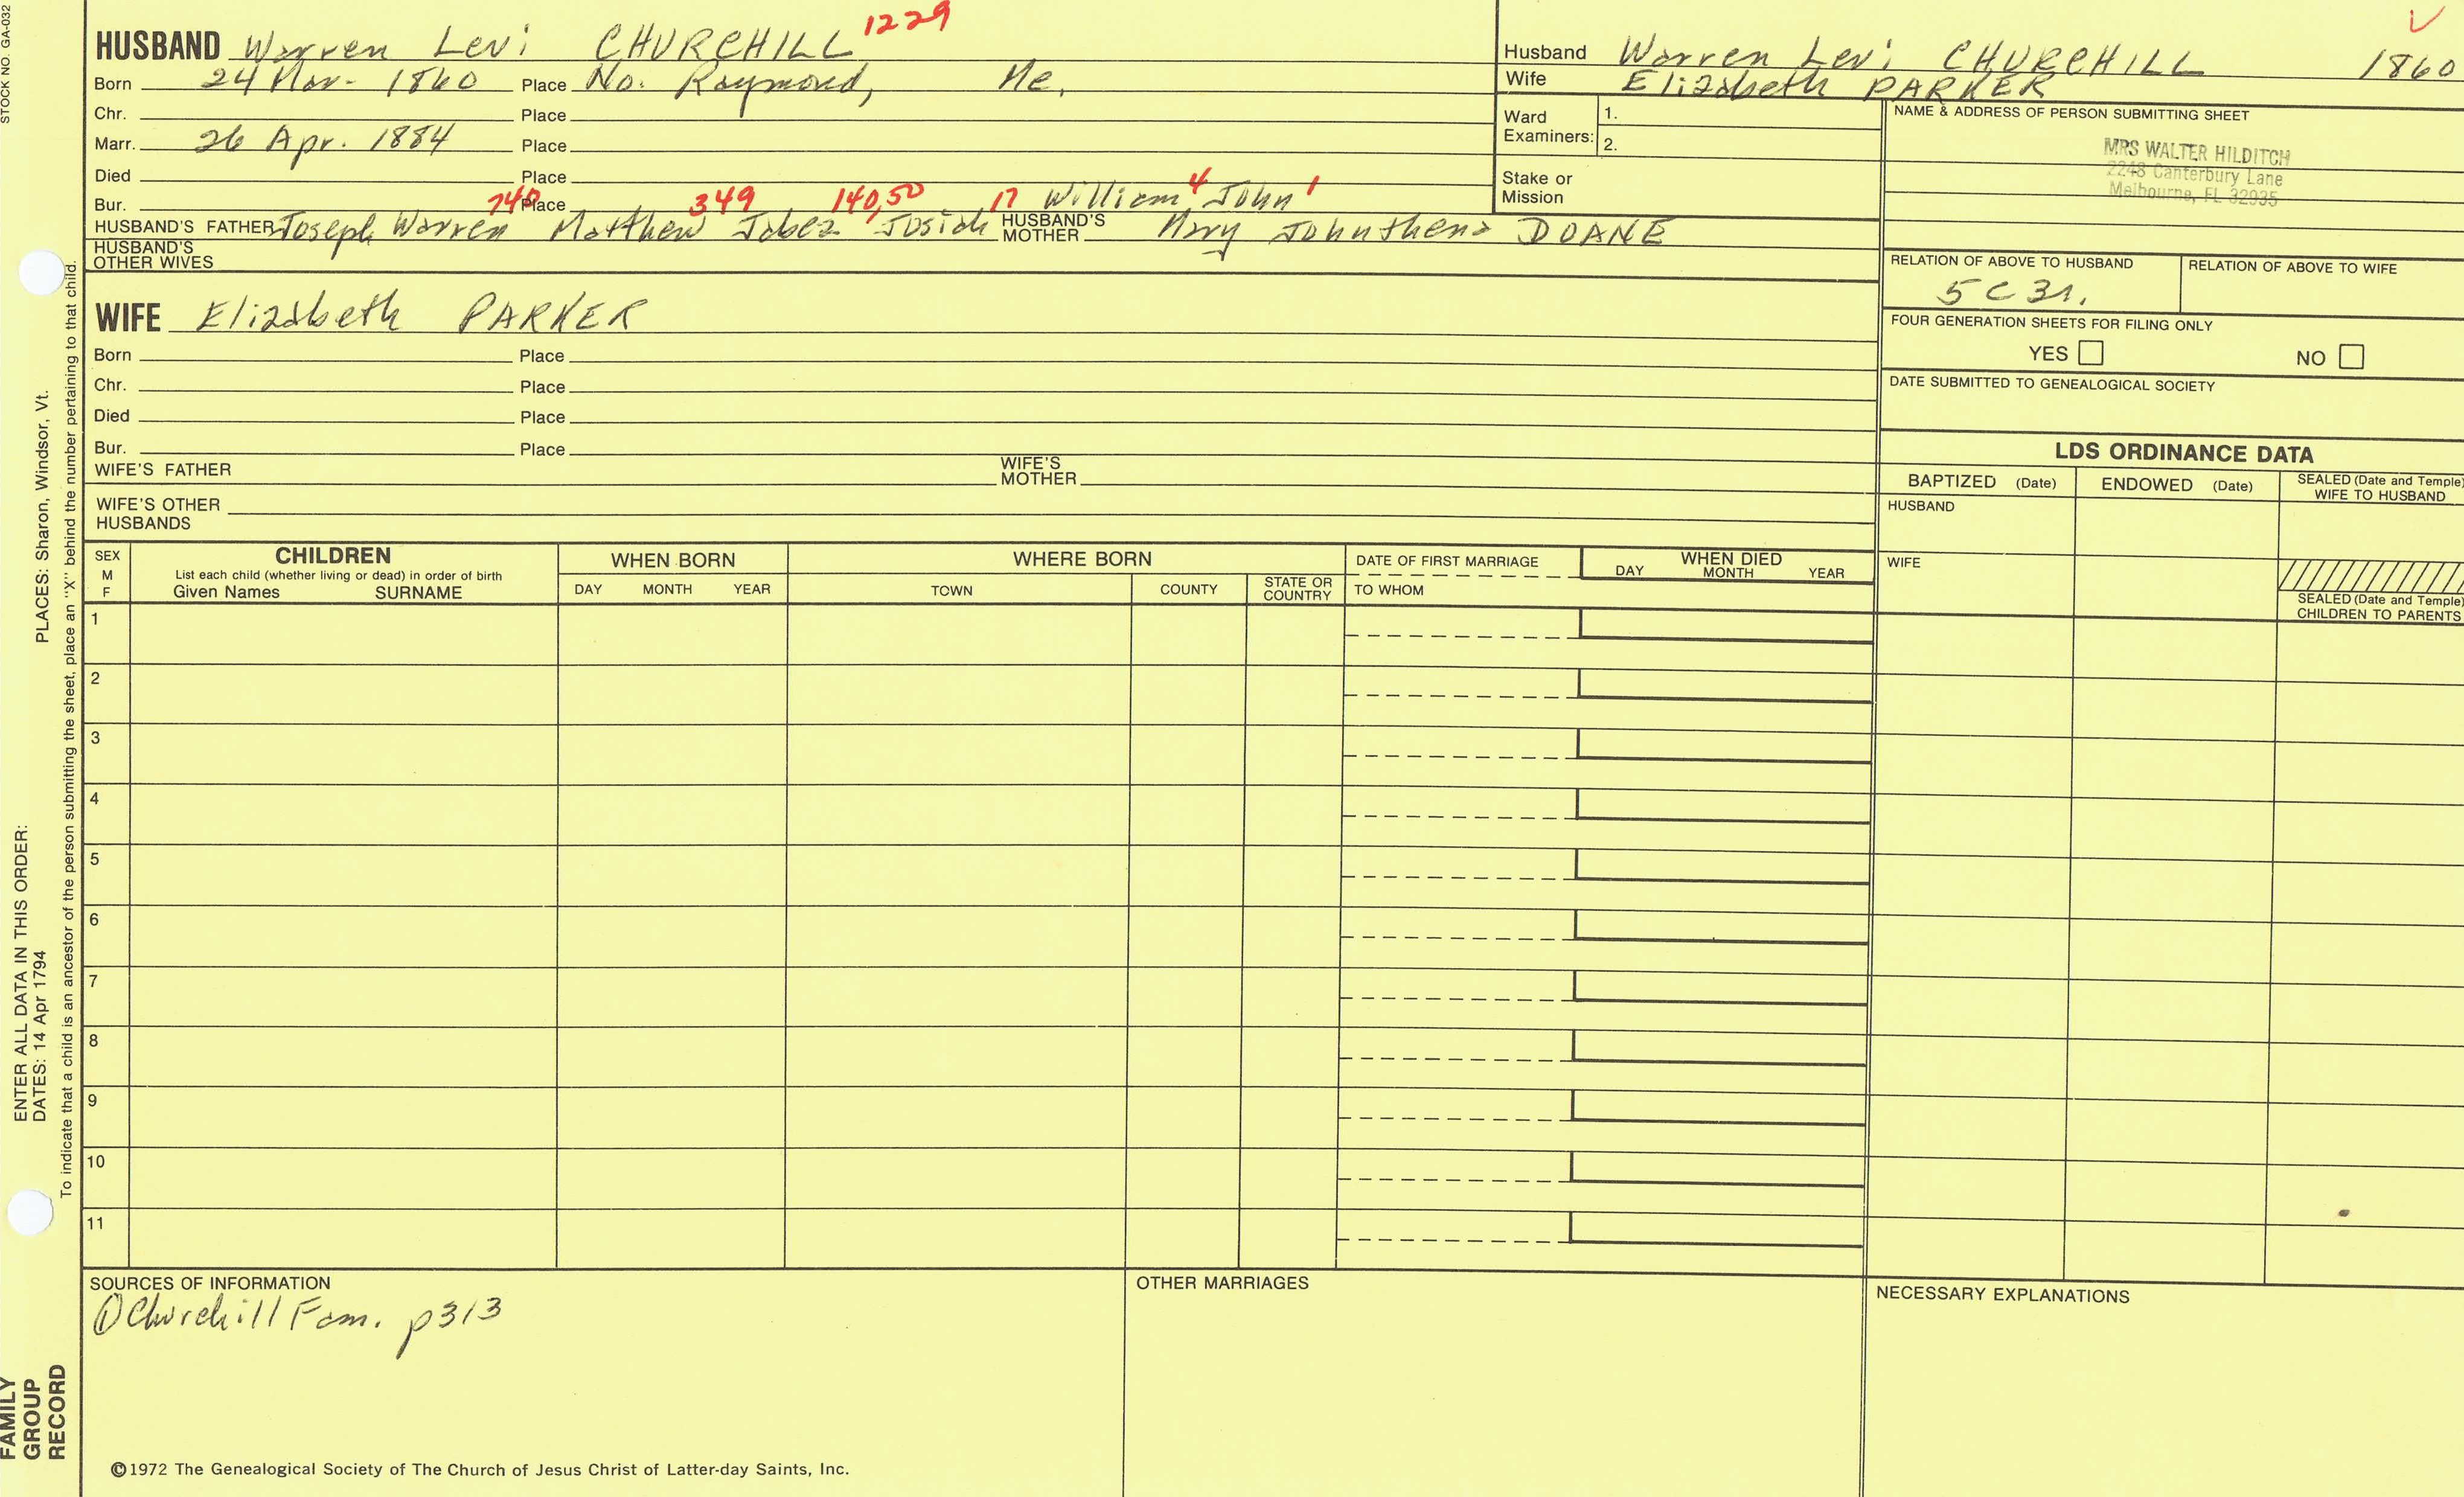 STOCK NO. GA-032
HUSBAND Warren Levi CHURCHILL 1229
Born 24 Mar. 1860 Place No. Raymond, Me.
Chr. Place
Marr. 26 Apr. 1884 Place
Died Place
Bur. 740 Place 349 140,50 17 William 4 John 1
HUSBAND'S FATHER Joseph Warren Matthew Jabez Josiah HUSBAND'S MOTHER Mary Johnthena DOANE
HUSBAND'S OTHER WIVES
WIFE Elizabeth PARKER
Born Place
Chr. Place
Died Place
Bur. Place
WIFE'S FATHER WIFE'S MOTHER
WIFE'S OTHER HUSBANDS
Husband Warren Levi CHURCHILL 1860
Wife Elizabeth PARKER
Ward Examiners: 1.
2.
Stake or Mission
NAME & ADDRESS OF PERSON SUBMITTING SHEET
MRS WALTER HILDITCH
2248 Canterbury Lane
Melbourne, FL 32935
RELATION OF ABOVE TO HUSBAND RELATION OF ABOVE TO WIFE
5 C 3r.
FOUR GENERATION SHEETS FOR FILING ONLY
YES NO
DATE SUBMITTED TO GENEALOGICAL SOCIETY
LDS ORDINANCE DATA
BAPTIZED (Date) ENDOWED (Date) SEALED (Date and Temple) WIFE TO HUSBAND
HUSBAND
WIFE
SEALED (Date and Temple) CHILDREN TO PARENTS
SEX M F
CHILDREN
List each child (whether living or dead) in order of birth
Given Names SURNAME
WHEN BORN
DAY MONTH YEAR
WHERE BORN
TOWN COUNTY STATE OR COUNTRY
DATE OF FIRST MARRIAGE
TO WHOM
WHEN DIED
DAY MONTH YEAR
1
2
3
4
5
6
7
8
9
10
11
SOURCES OF INFORMATION
① Churchill Fam. p313
OTHER MARRIAGES
NECESSARY EXPLANATIONS
©1972 The Genealogical Society of The Church of Jesus Christ of Latter-day Saints, Inc.
ENTER ALL DATA IN THIS ORDER:
DATES: 14 Apr 1794 PLACES: Sharon, Windsor, Vt.
To indicate that a child is an ancestor of the person submitting the sheet, place an "X" behind the number pertaining to that child.
FAMILY
GROUP
RECORD